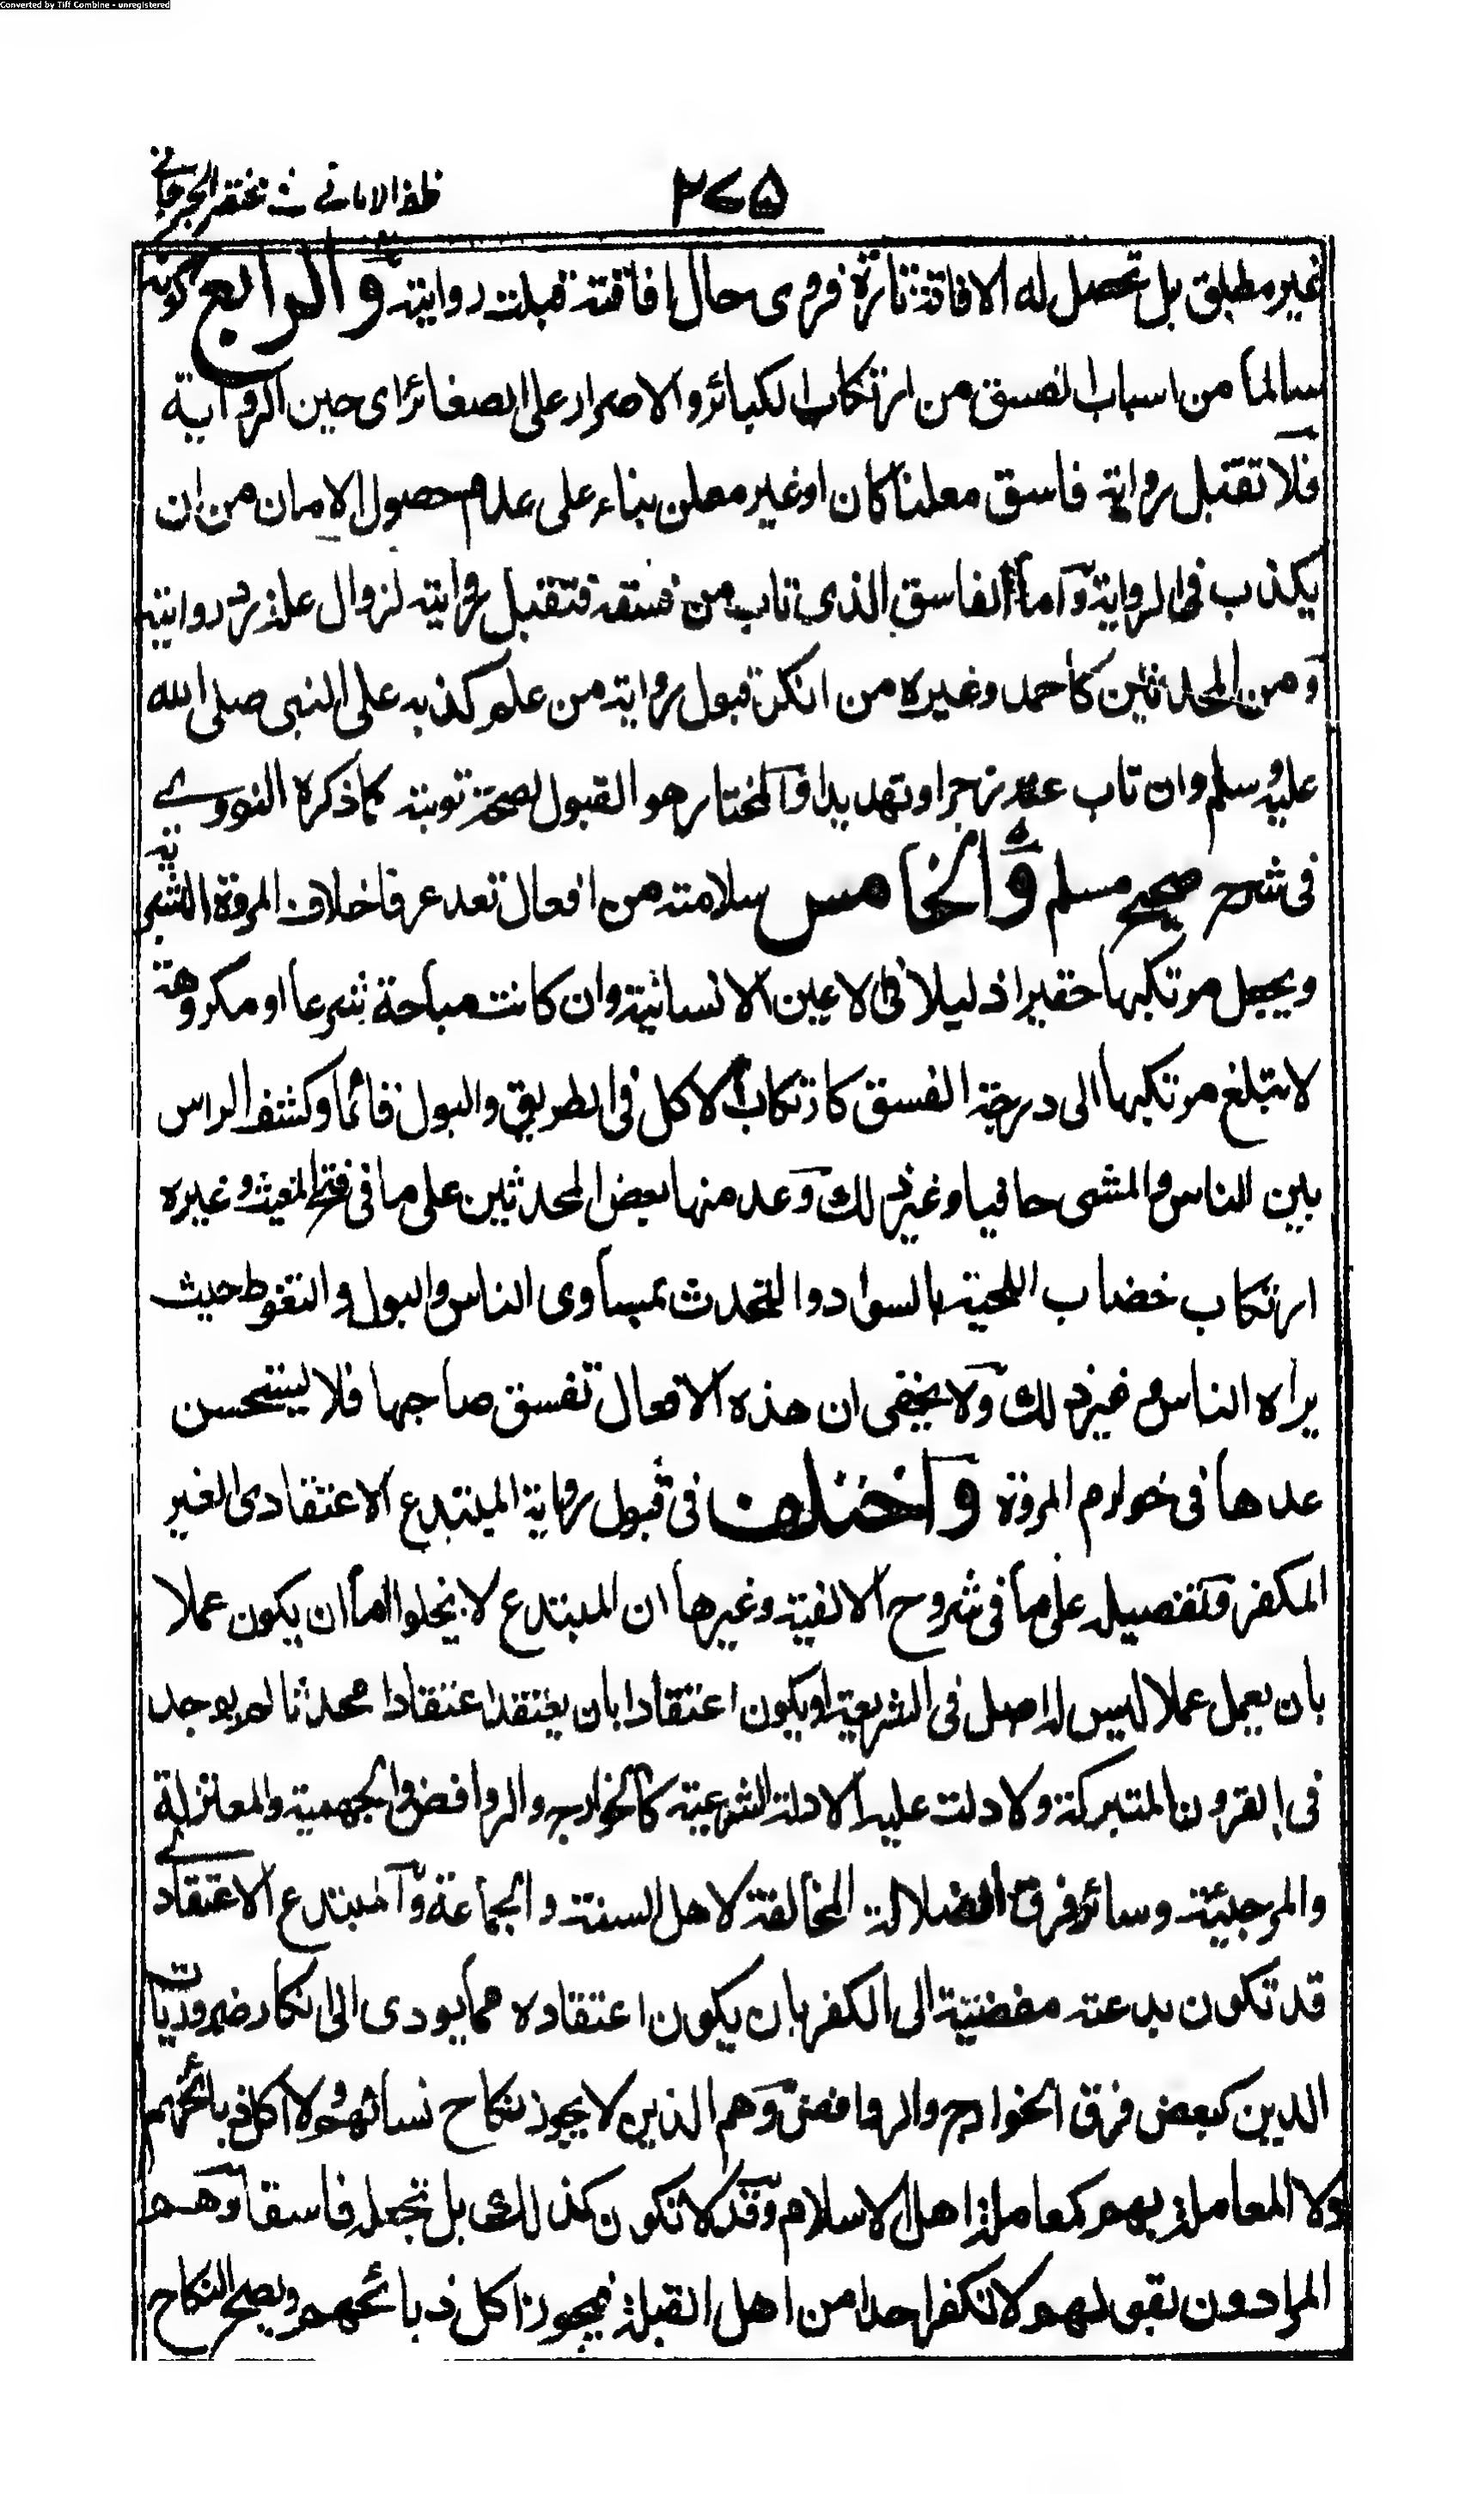 Converted by Tiff Combine - unregistered
ظفر الامانی فی مختصر الجرجانی
۲۷۵
غیر مطبق بل تحصل له الافاقة تارة فروی حال افاقته قبلت روایته والرابع کونه
سالما من اسباب الفسق من ارتکاب الکبائر والاصرار علی الصغائر ای حین الروایة
فلا تقبل روایة فاسق معلنا کان او غیر معلن بناء علی عدم حصول الامان من ان
یکذب فی الروایة واما الفاسق الذی تاب من فسقه فتقبل روایته لزوال علة رد روایته
ومن المحدثین کاحمد وغیره من انکر قبول روایة من علم کذبه علی النبی صلی الله
علیه وسلم وان تاب عنه زجرا وتهدیدا والمختار هو القبول لصحة توبته کما ذکره النووے
فی شرح صحیح مسلم والخامس سلامته من افعال تعد عرفا خلاف المروة البشریة
ویجعل مرتکبها حقیرا ذلیلا فی الاعین الانسانیة وان کانت مباحة شرعا او مکروهة
لا تبلغ مرتکبها الی درجة الفسق کارتکاب الاکل فی الطریق والبول قائما وکشف الراس
بین الناس والمشی حافیا وغیر ذلک وعد منها بعض المحدثین علی ما فی فتح المغیث وغیره
ارتکاب خضاب اللحیة بالسواد والتحدث بمساوی الناس والبول والتغوط حیث
یراه الناس وغیر ذلک ولا یخفی ان هذه الافعال تفسق صاحبها فلا یستحسن
عدها فی خوارم المروة واختلف فی قبول روایة المبتدع الاعتقادی الغیر
المکفر وتفصیله علی ما فی شروح الالفیة وغیرها ان المبتدع لا یخلوا اما ان یکون عملا
بان یعمل عملا لیس له اصل فی الشریعة او یکون اعتقادا بان یعتقد اعتقادا محدثا لم یوجد
فی القرون المتبرکة ولا دلت علیه الادلة الشرعیة کالخوارج والروافض والجهمیة والمعتزلة
والمرجئیة وسائر فرق الضلالة المخالفة لاهل السنة والجماعة والمبتدع الاعتقادے
قد تکون بدعته مفضیة الی الکفر بان یکون اعتقاده مما یودی الی انکار ضروریات
الدین کبعض فرق الخوارج والروافض وهم الذین لا یجوز نکاح نسائهم ولا اکل ذبائحهم
ولا المعاملة بهم کمعاملة اهل الاسلام وقد لا تکون کذلک بل تجعله فاسقا وهم
المرادون بقولهم لا نکفر احدا من اهل القبلة فیجوز اکل ذبائحهم ویصح النکاح